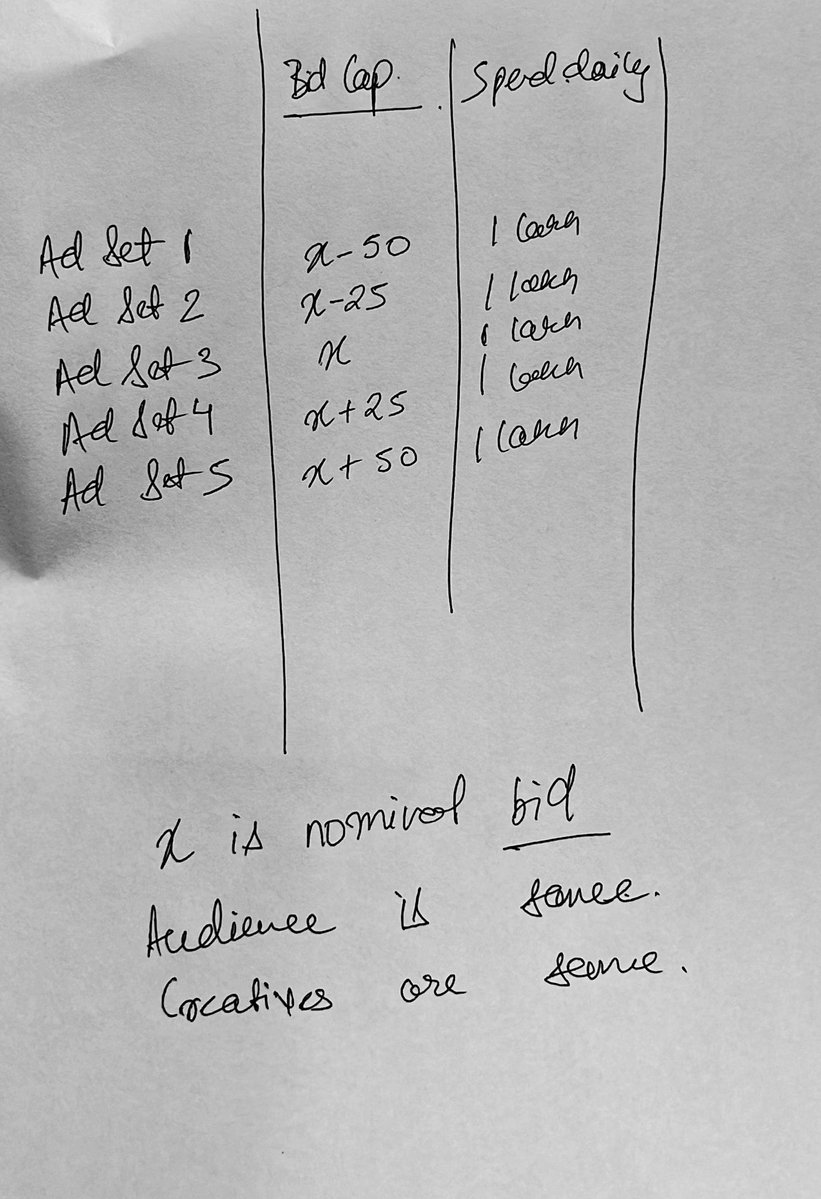 Bid Cap. Spend daily
Ad Set 1 x-50 1 lakh
Ad Set 2 x-25 1 lakh
Ad Set 3 x 1 lakh
Ad Set 4 x+25 1 lakh
Ad Set 5 x+50 1 lakh
x is nominal bid
Audience is same.
Creatives are same.